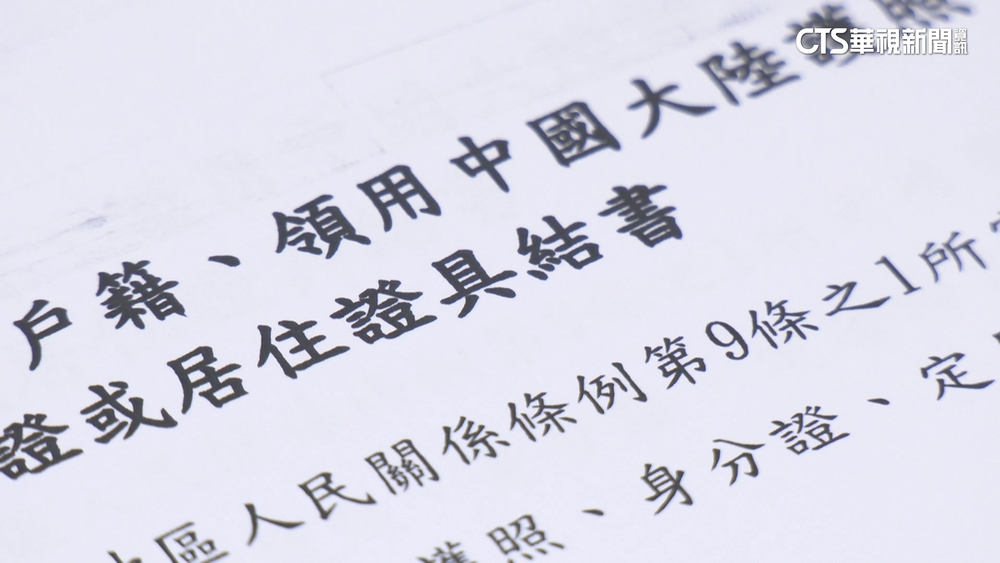 CTS華視新聞資訊
戶籍、領用中國大陸護照
證或居住證具結書
區人民關係條例第9條之1所
護照、身分證、定